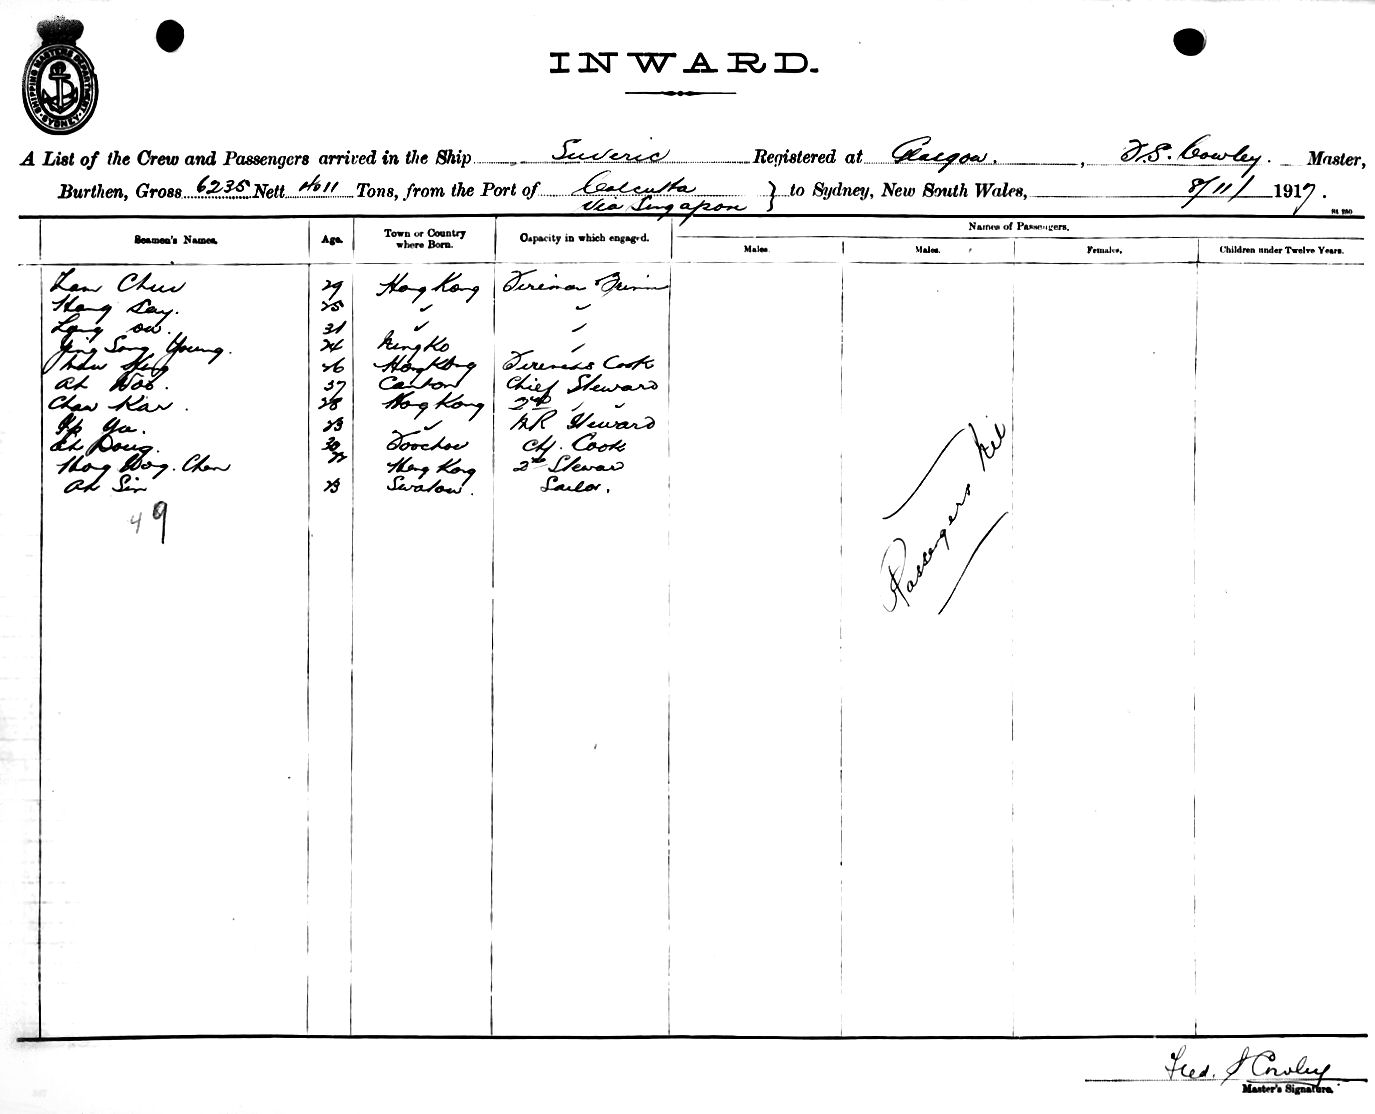 SHIPPING MASTERS DEPARTMENT SYDNEY
INWARD.
A List of the Crew and Passengers arrived in the Ship Suveric Registered at Glasgow, F.S. Cowley. Master,
Burthen, Gross 6235 Nett 4011 Tons, from the Port of Calcutta via Singapore } to Sydney, New South Wales, 8/11/1917.
Seamen's Names. Age. Town or Country where Born. Capacity in which engaged. Names of Passengers.
Males. Males. Females. Children under Twelve Years.
29 Hong Kong Fireman
25 " "
31 " "
Young. 24 "
26 Hong Kong Firemens Cook
Ah 37 Canton Chief Steward
Chan Kar. 28 Hong Kong 2nd " "
Ip Ya. 23 " Steward
30 Foochow Ch. Cook
Chan Hong Kong 2nd Steward
Ah Sin 23 Swatow. Sailor.
49
Passengers Nil
Fred. S Cowley
Master's Signature.